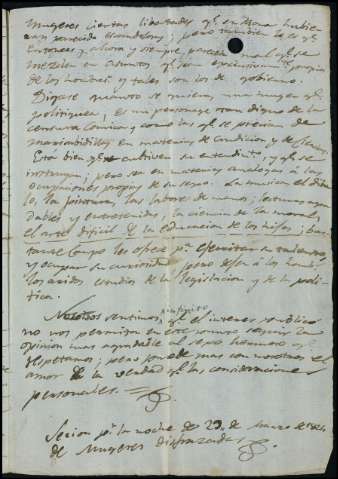 mugeres ciertas libertades q.e en Roma hubie
ran parecido escandalosas; pero tambien lo es q.e
entonces y ahora y siempre parecerá mal q.e se
mezclen en asuntos q.e son exclusivam.te propios
de los hombres y tales son los de gobierno.
Digase quanto se quiera, una muger q.e
politiquea, es un personage tan digno de la
censura comica como las q.e se precian de
marisabidillas en materias de erudicion y de ciencias.
Está bien q.e cultiven su entendim.to, y q.e se
instruyan; pero sea en materias analogas á las
ocupaciones propias de su sexo. La musica el dibu
jo, la pintura, las labores de manos, lecturas agra
dables y entretenidas, la ciencia de la moral,
el arte dificil de la educacion de los hijos; bas
tante campo les ofrece p.a ejercitar su talento
y ocupar su curiosidad, pero dejen á los hombres
los aridos estudios de la legislacion y de la poli
tica.
Nosotros sentimos q.e el interes publico
no nos permita en este punto seguir la
opinion mas agradable al sexo hermoso q.e
respetamos; pero puede mas con nosotros el
amor de la verdad q.e las consideraciones
personales.
Secion p.a la noche de 29 de Marzo de
de Mugeres disfrazadas